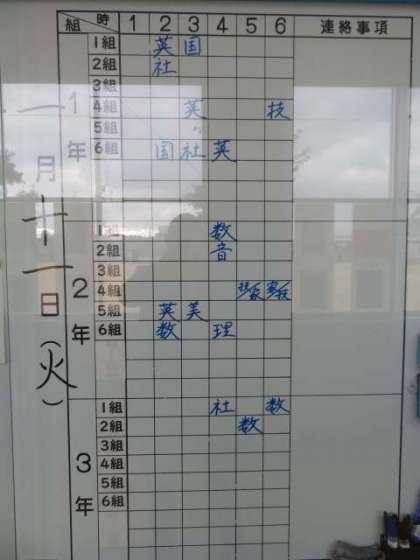 組 時 1 2 3 4 5 6 連絡事項
1年
1組 英 国
2組 社
3組
4組 英 技
5組 〃
6組 国 社 英
2年
1組 数
2組 音
3組
4組
5組 英 美
6組 数 理
3年
1組 社 数
2組 数
3組
4組
5組
6組
月十一日(火)